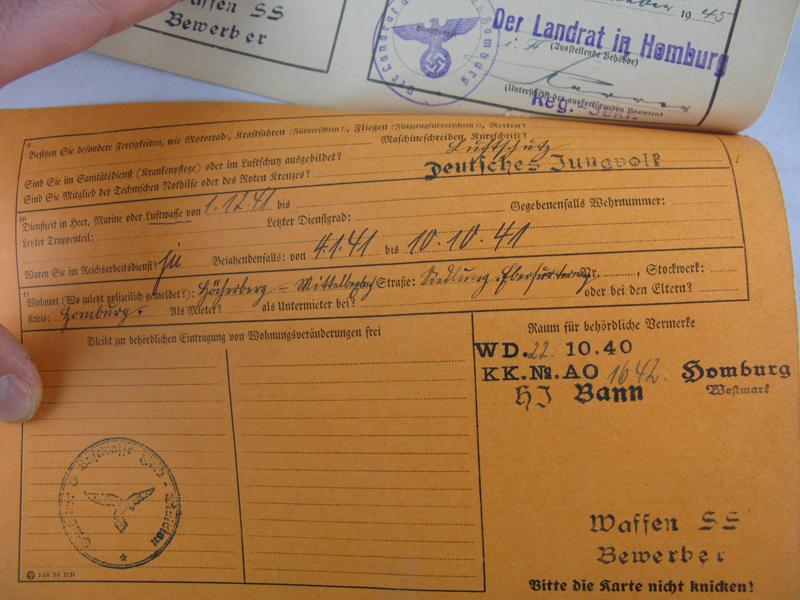 Waffen SS
Bewerber
1945
Der Landrat in Homburg
(Ausstellende Behörde)
(Unterschrift des ausfertigenden Beamten)
Reg.-Sekr.
9
Besitzen Sie besondere Fertigkeiten, wie Motorrad-, Kraftfahren (Führerschein?), Fliegen (Flugzeugführerschein?), Reiten?
Maschineschreiben, Kurzschrift?
Sind Sie im Sanitätsdienst (Krankenpflege) oder im Luftschutz ausgebildet? Luftschutz
Sind Sie Mitglied der Technischen Nothilfe oder des Roten Kreuzes? Deutsches Jungvolk
10
Dienstzeit in Heer, Marine oder Luftwaffe von 1.12.41 bis
Gegebenenfalls Wehrnummer:
Letzter Truppenteil: Letzter Dienstgrad:
Waren Sie im Reichsarbeitsdienst? ja Bejahendenfalls: von 4.1.41 bis 10.10.41
11
Wohnort (Wo zuletzt polizeilich gemeldet?): Höcherberg - Mittelbexbach Straße: Siedlung Nr. , Stockwerk:
Kreis: Homburg. Als Mieter? als Untermieter bei? oder bei den Eltern?
Bleibt zur behördlichen Eintragung von Wohnungsveränderungen frei
Raum für behördliche Vermerke
WD. 22. 10.40
KK.No.AO 1642. Homburg
HJ Bann Westmark
Waffen SS
Bewerber
Bitte die Karte nicht knicken!